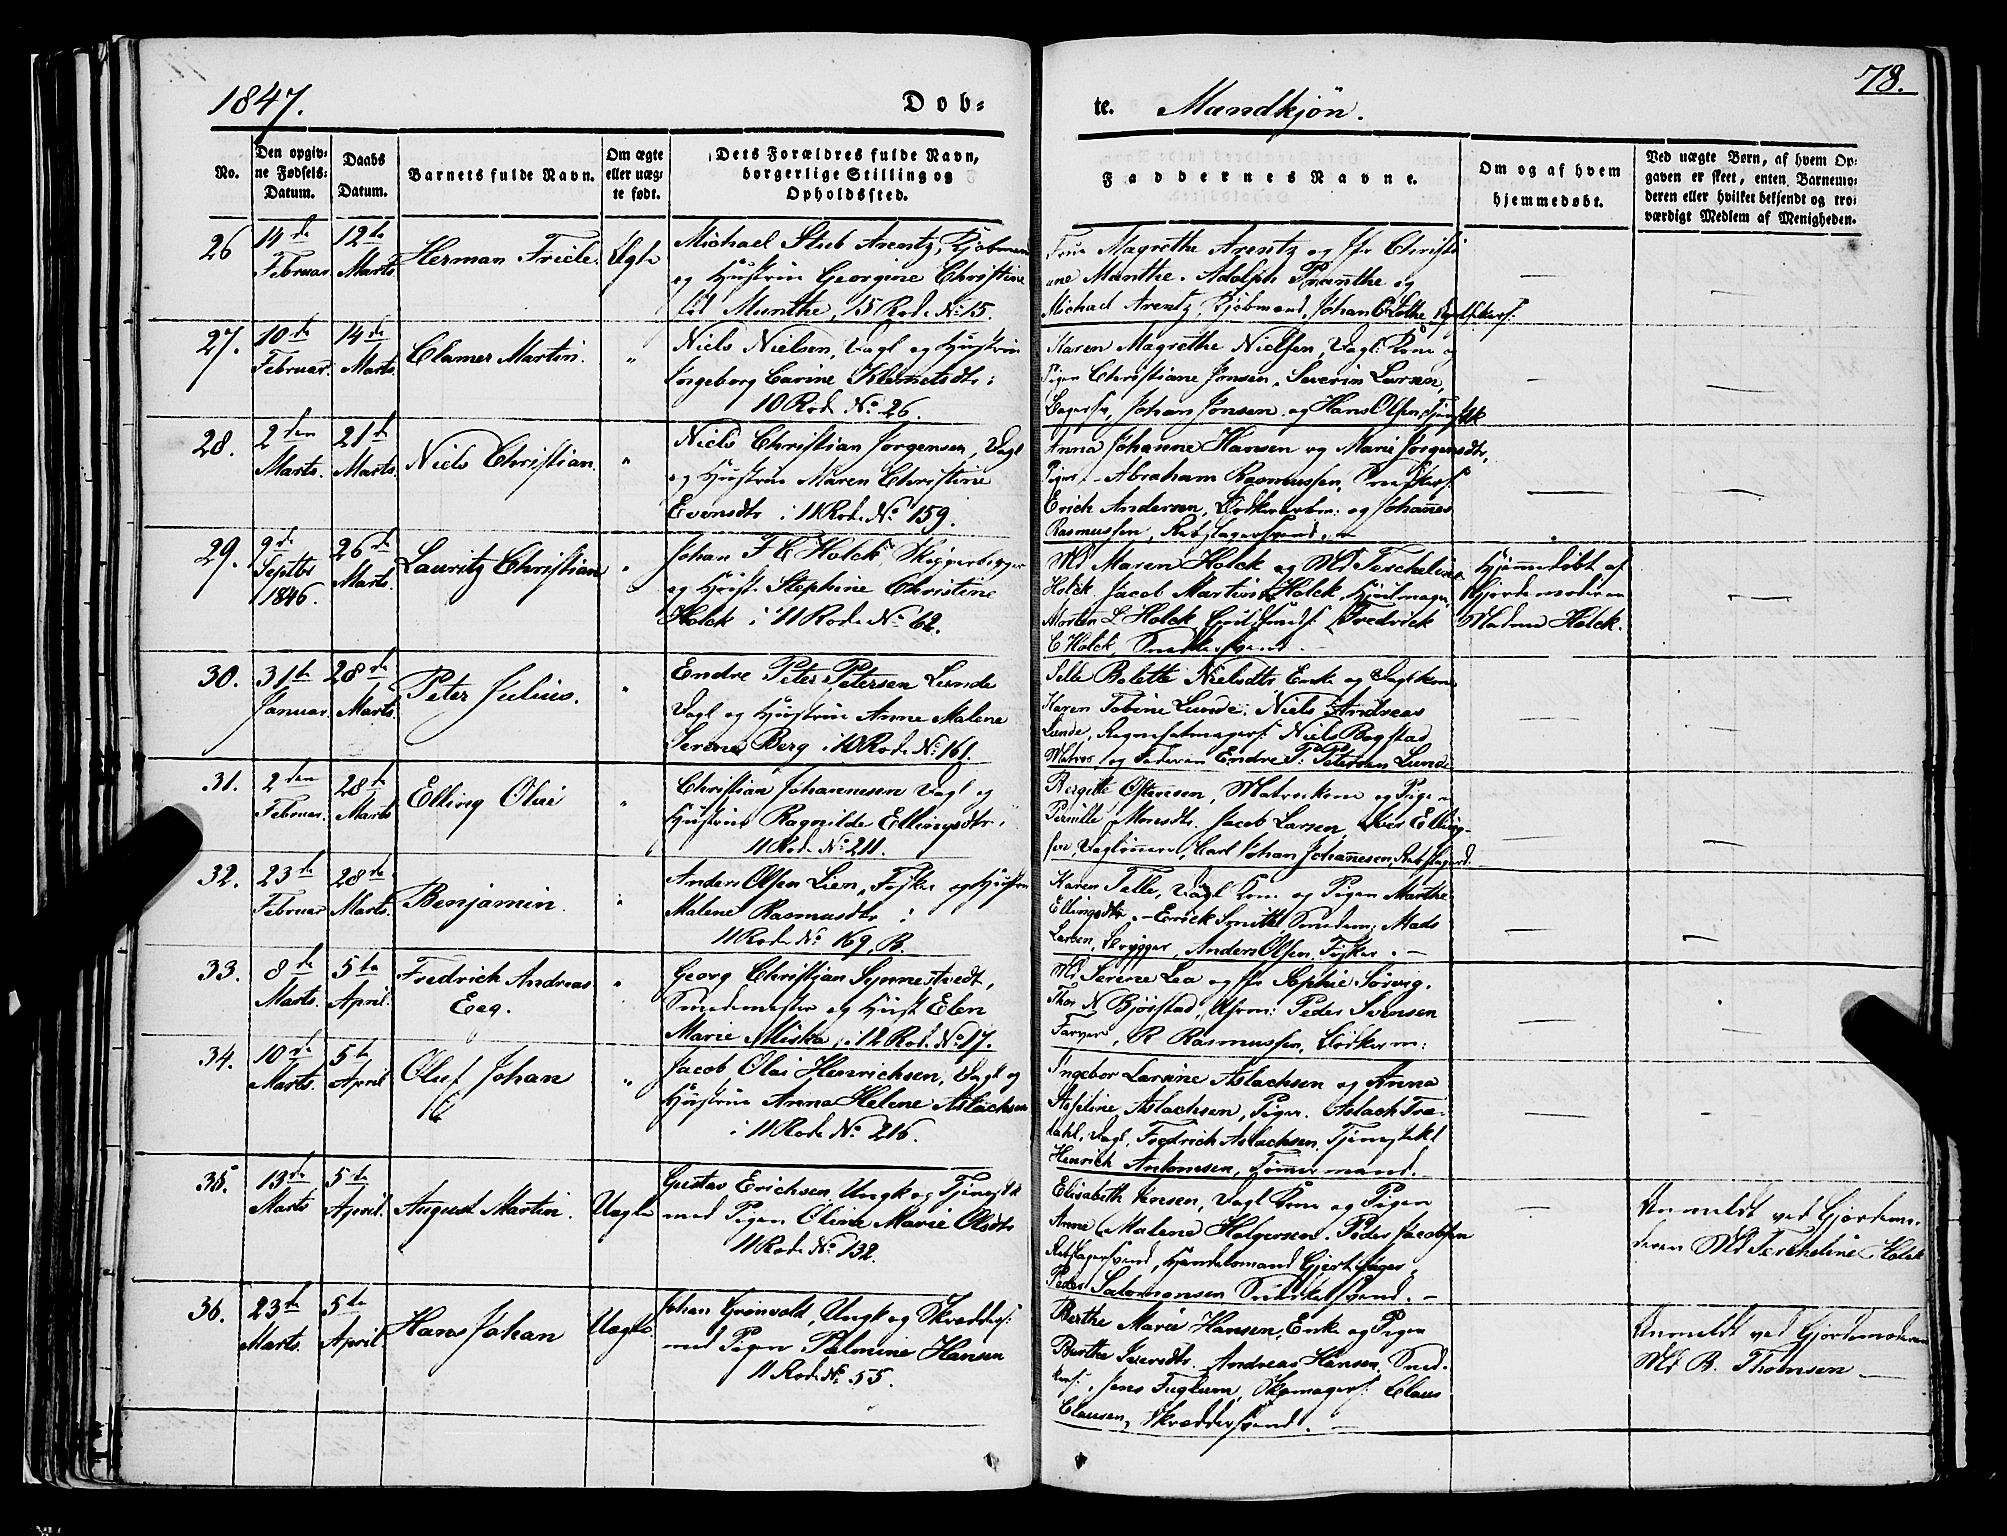 1847.
Døb-
te. Mandkjøn.
78.
No.
Den opgiv-
ne Fødsels-
Datum.
Daabs
Datum.
Barnets fulde Navn.
Om ægte
eller uæg-
te født.
Dets Forældres fulde Navn,
borgerlige Stilling og
Opholdssted.
Faddernes Navne.
Om og af hvem
hjemmedøbt.
Ved uægte Børn, af hvem Op-
gaven er skeet, enten Barnemo-
deren eller hvilket bekjendt og tro-
værdigt Medlem af Menigheden.
26
14de
Februar
12te
Marts
Herman Friele.
Ægte
Michael Stub Arentz, Kjøbmand
og Hustrue Georgine Christine
Munthe, 15 Rode No 15.
Frue Magrethe Arentz og Christi
ane Munthe. Adolph Munthe og
Michael Arentz, Kjøbmænd, Johan
27.
10de
Februar.
14de
Marts.
Clamer Martin.
"
Niels Nielsen, Vagt og Hustrue
Ingeborg Carine Klemetsdtr i
10 Rode No 26.
Karen Magrethe Nielsen, Vagt. Kone og
Pigen Christiane Jonsen, Severin Larsen,
Johan Jonsen og Hans Olsen,
28.
2den
Marts.
21de
Marts.
Niels Christian.
"
Niels Christian Jørgensen, Vagt
og Hustrue Maren Christine
Evensdtr i 11 Rode No 159.
Anna Johanne Hansen og Marie Jørgensdtr,
Piger. Abraham Rasmussen,
Erich Andersen, og Johannes
Rasmussen, Rebslagersvend.
29.
9de
Septbr
1846.
26de
Marts.
Lauritz Christian
"
Johan F C Holck, Skibbygger
og Hustr. Stephine Christine
Holck i 11 Rode No 62.
Md Maren Holck og Md Tercheline
Holck. Jacob Martinus Holck, Hjulmager,
Morten L Holck, Fredrick
C Holck, Snedkersvend.
Hjemmedøbt af
Gjordemoderen
Madme Holck.
30.
31te
Januar.
28de
Marts.
Peter Julius.
"
Endre Peter Petersen Lunde
Vagt og Hustrue Anne Malene
Serene Berg i 10 Rode No 161.
Bolette Nielsdtr Enke og Vagtkone
Karen Tobine Lunde. Niels Andreas
Lunde, Niels Bogstad
Matros, og Faderen Endre P. Petersen Lunde
31.
2den
Februar.
28de
Marts
Elling Olai
"
Christian Johannesen Vagt og
Hustrue Ragnilde Ellingsdtr i
11 Rode No 211.
Bergitte Ostensen, Matroskone og Pige
Pernille Monsdtr, Jacob Larsen, Iver Elling-
sen, Carl Johan Johannesen,
32.
23de
Februar
28de
Marts.
Benjamin.
"
Anders Olsen Lien, Fisker og Hustrue
Malene Rasmusdtr i
11 Rode No 169, B.
Karen Telle, Vagt. Kone og Pigen Marthe
Ellingsdtr. Erick Smith, Smedem: Mads
Larsen, Brygger, Anders Olsen, Fisker.
33.
8de
Marts.
5te
April.
Fredrich Andreas
Eeg.
"
Georg Christian Synnestvedt,
Smedemester og Hust. Elen
Marie Miska, i 12 Rode No 17.
Md Serene Lea og Sophie Sørvig.
Thor N Bjørstad, Peder Svensen
Farver, R Rasmussen, Bødkerm:
34.
10de
Marts.
5te
April
Oluf Johan
"
Jacob Olai Henrichsen, Vagt og
Hustrue Anna Helene Aslachsen
i 11 Rode No 216.
Ingebor Larsine Aslachsen og Anna
Aslachsen, Piger. Aslach Træ-
dahl, Vagt, Fredrich Aslachsen, Tjenestekl
Henrich Antonesen, Tømmermand.
35.
13de
Marts
5te
April.
August Martin.
Uægte
Gustav Erichsen, Ungk. og Tjenestk
med Pigen Oline Marie Olsdtr
11 Rode No 132.
Elisabeth Jensen, Vagt. Kone og Pigen
Anne Malene Holgersen. Peder Jacobsen
Rebslagersvend, Handelsmand Gjert
Peder Salomonsen Snedkersvend.
Anmeldt ved Gjordemo-
deren Md Tercheline Holck
36.
23de
Marts.
5te
April.
Hans Johan
Uægte
Johan Grønvold, Ungk og Skredders:
med Pigen Palmine Hansen
11 Rode No 55.
Berthe Marie Hansen, Enke og Pigen
Berthe Siversdtr. Andreas Hansen, Sned.
kers., Jens Fuglum, Skomagers: Claus
Clausen, Skreddersvend.
Anmeldt ved Gjordemoderen
Md B. Thomsen